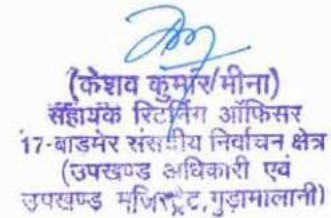 (केशव कुमार/मीना)
सहायक रिटर्निंग ऑफिसर
17-बाडमेर संसदीय निर्वाचन क्षेत्र
(उपखण्ड अधिकारी एवं
उपखण्ड मजिस्ट्रेट,गुड़ामालानी)